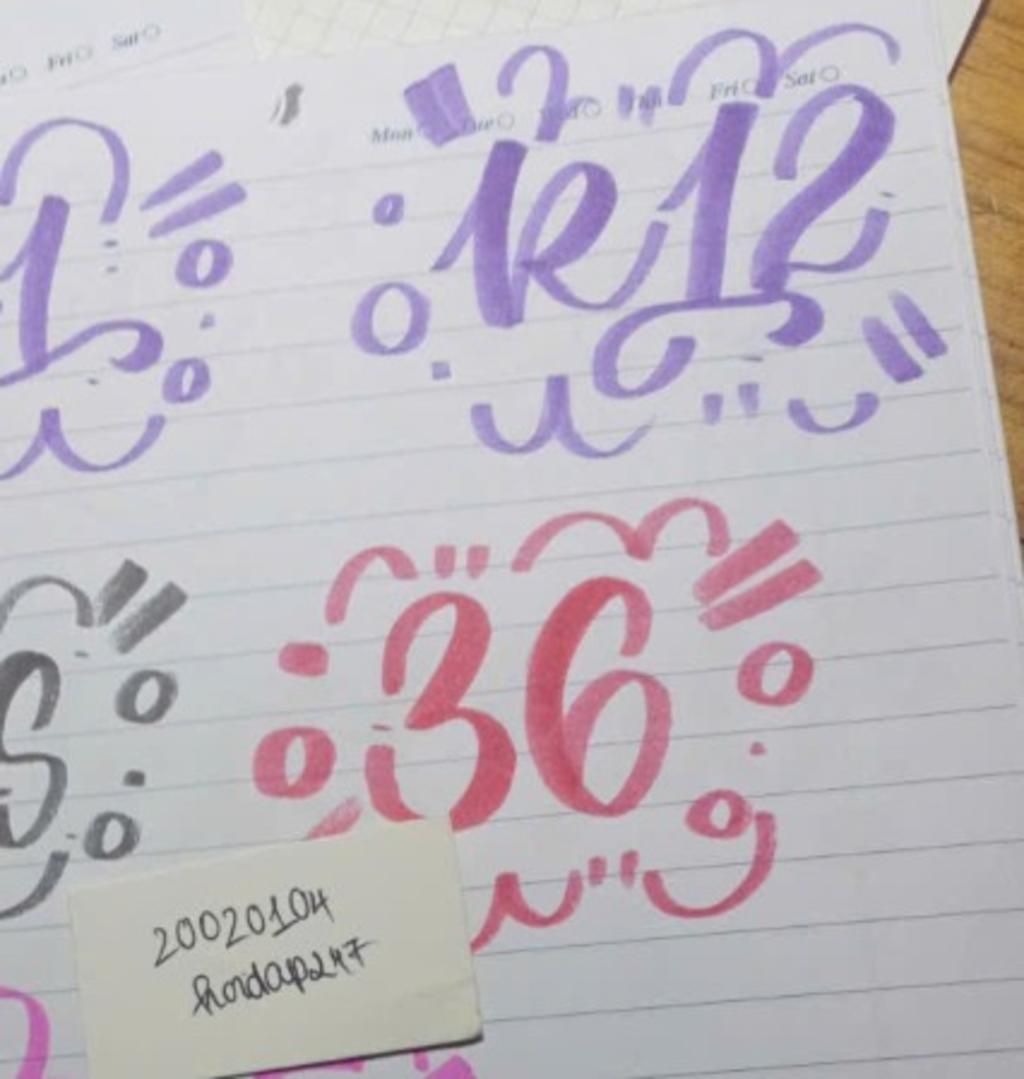 Fri Sat
Mon Tue Wed Thu Fri Sat
1 k12
36
20020104
hoidap247